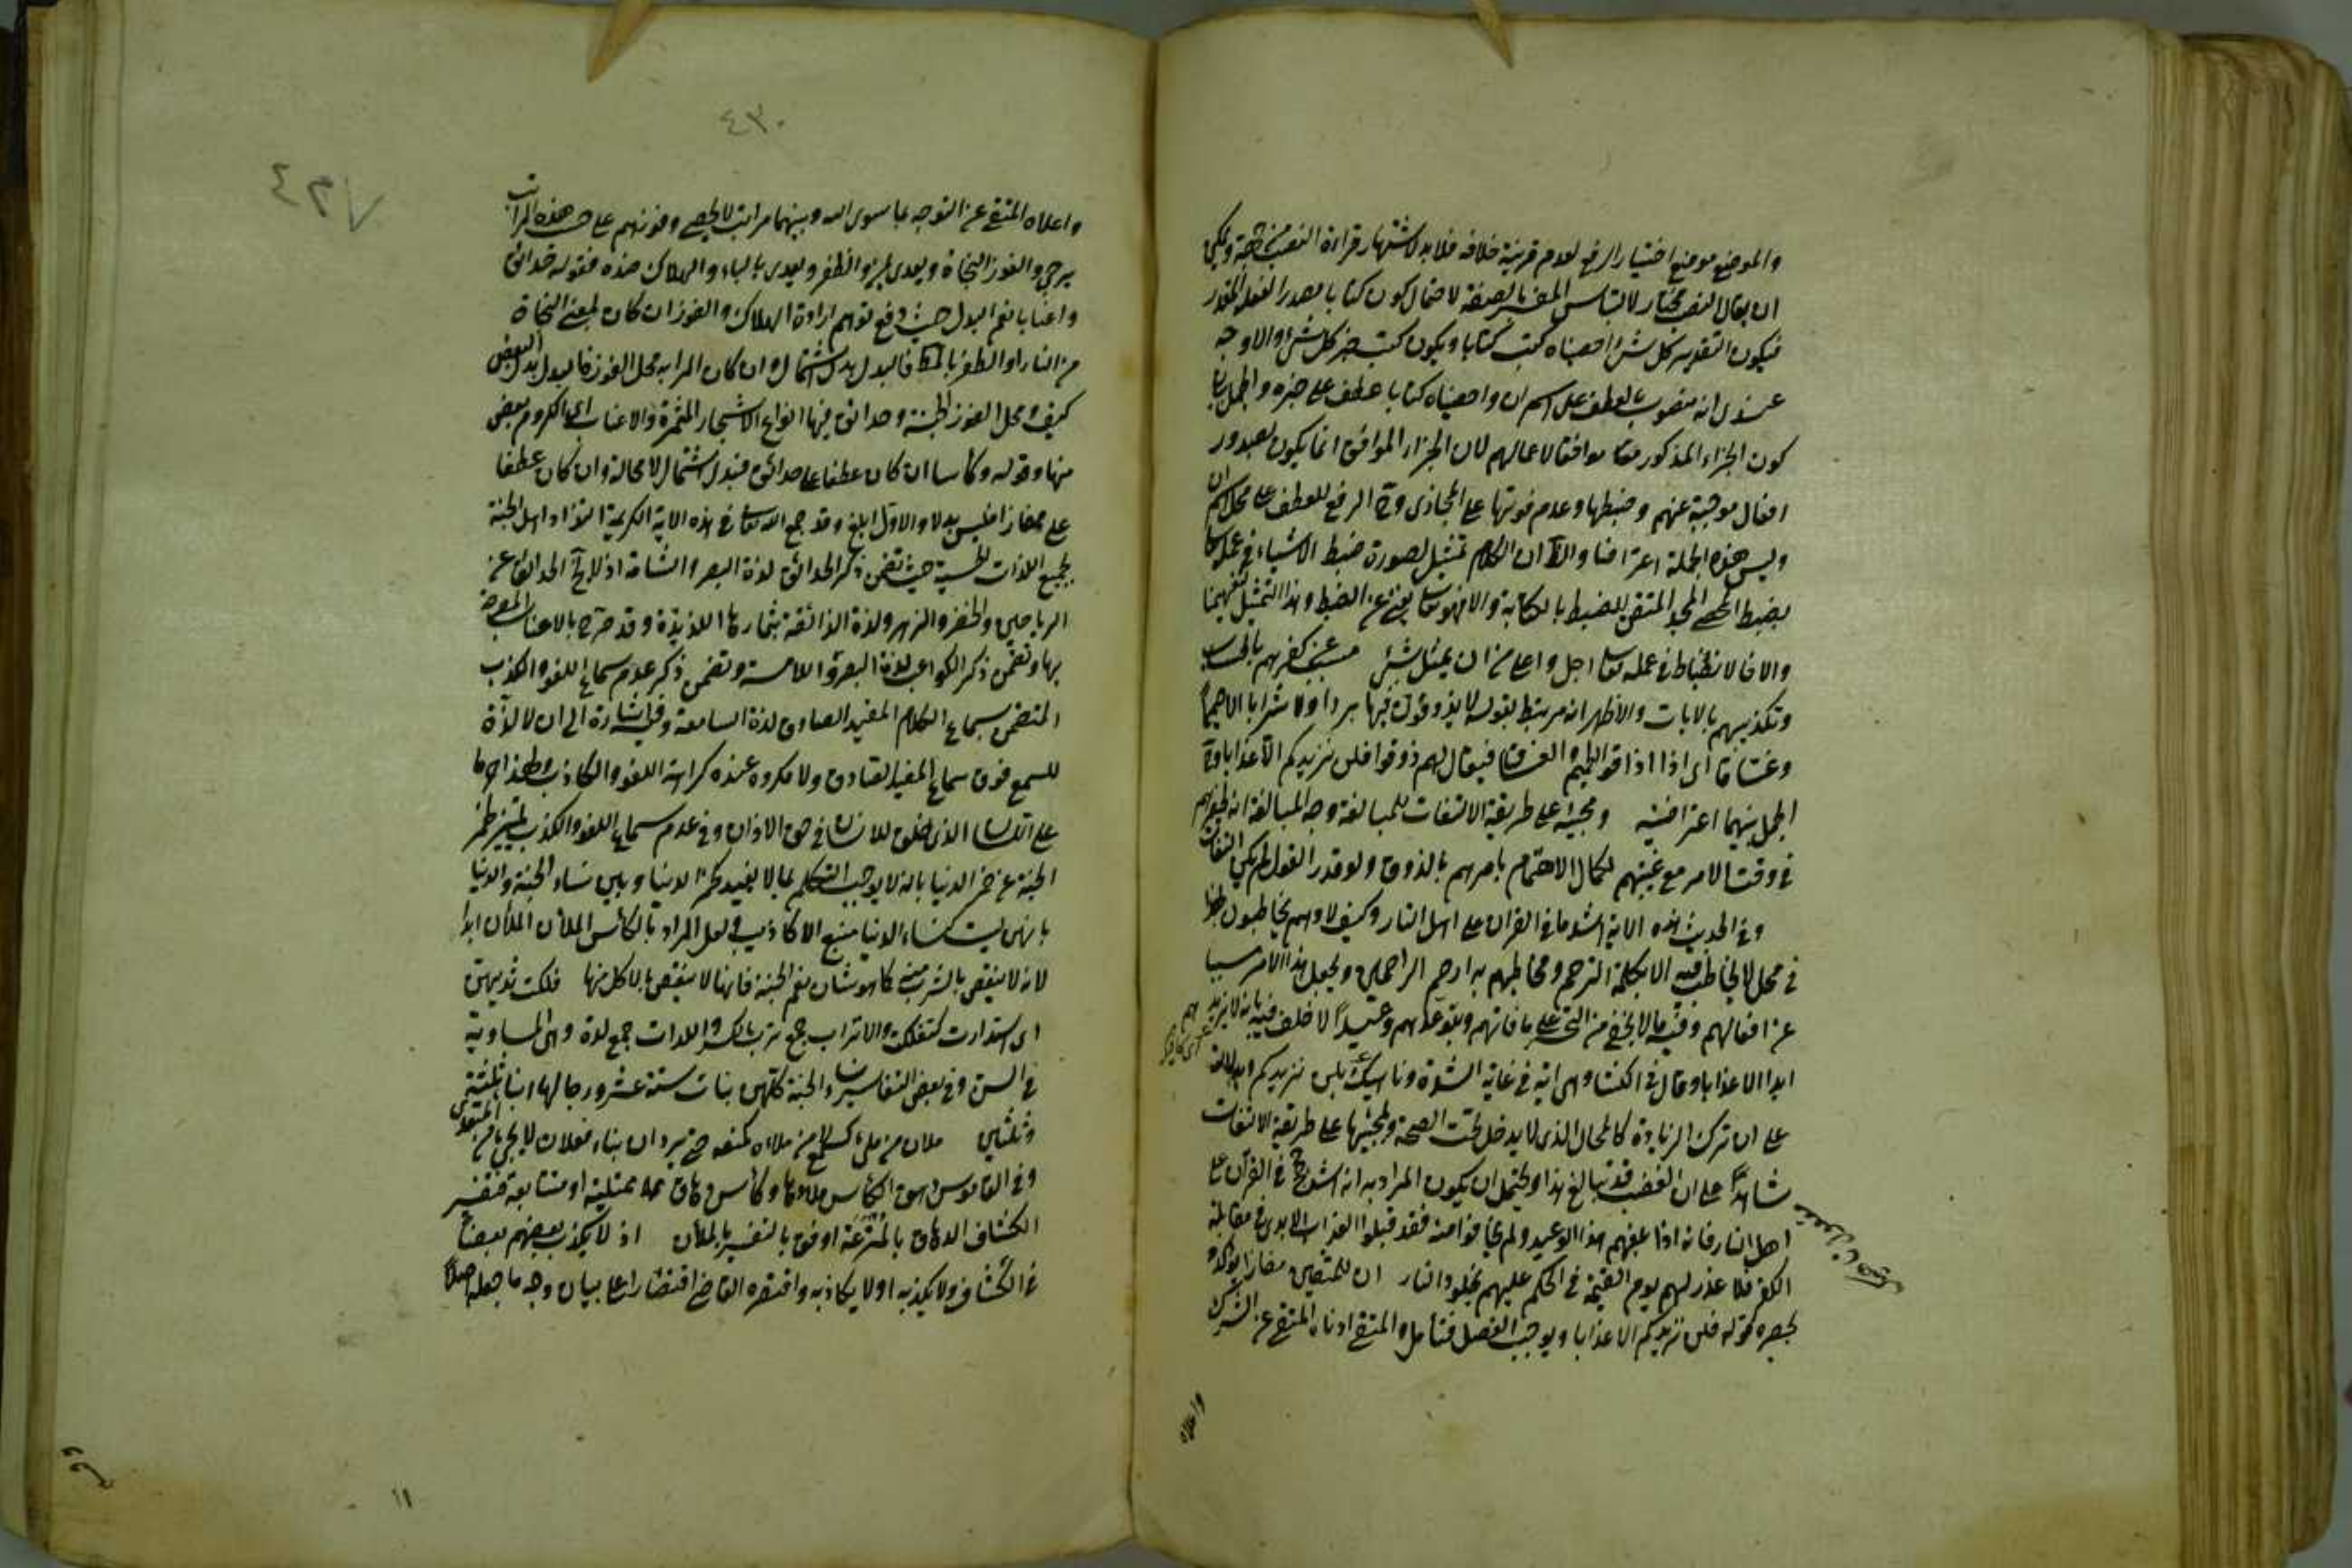 والموضع موضع اختيار الرفع لعدم قرينة خلافه فلا بد لاشتهار قراءة النصب من جهة ويمكن
ان يقال النصب مختار لالتباس المفسر بالصفة لاحتمال كون كتابا مصدر الفعل المقدر
فيكون التقدير كل شئ احصيناه كتب كتابا ويكون كتب خبر كل شئ والاوجه
عندى انه منصوب بالعطف على اسم ان واحصيناه كتابا عطف على خبره والجمل بيان
كون الجزاء المذكور موافقا لاعمالهم لان الجزاء الموافق انما يكون بصدور
افعال موجبة عنهم وضبطها وعدم فوتها على المجازى وح الرفع للعطف على محل اسم ان
وليس هذه الجملة اعتراضا و ان الكلام تمثيل لصورة ضبط الاشياء فى علمه تعالى
بضبط المحصى المجد المتقن للضبط بالكتابة والا فهو تعالى يغنى عن الضبط وهذا التمثيل لتفهيمنا
والا فالانضباط فى علمه تعالى اجل واعلى من ان يمثل بشئ مسبب عن كفرهم بالحساب
وتكذيبهم بالايات والاظهر انه مرتبط بقوله لا يذوقون فيها بردا ولا شرابا الا حميما
وغساقا اى اذا اذاقوا الحميم والغساق فيقال لهم ذوقوا فلن نزيدكم الا عذابا و
الجمل بينهما اعتراضية ومجيئه على طريقة الالتفات للمبالغة وجه المبالغة انه
فى وقت الامر مع غيبتهم لكمال الاهتمام بامرهم بالذوق ولو قدر القول لم يكن التفات
وفى الحديث هذه الاية اشد ما فى القران على اهل النار وكيف لا وهم يخاطبون بها
فى محل لا يخاطب فيه الا بكلمة الترحم ومخاطبهم به ارحم الراحمين ويجعل هذا الامر مسببا
عن افعالهم وفيه ما لا يخفى من التحسر على ما فاتهم وبتوعدهم وعيدا لا خلف فيه بانه لا يزيدهم
ابدا الا عذابا وقال فى الكشاف وهى اية فى غاية الشدة وناهيك بلن نزيدكم وبدلالته
على ان ترك الزيادة كالمحال الذى لا يدخل تحت الصحة وبمجيئها على طريقة الالتفات
شاهدا على ان الغضب قد تبالغ هذا ويحتمل ان يكون المراد به انه اشد فى القرآن على
اهل النار فانه اذا بلغهم هذا الوعيد ولم يخافوا منه فقد قبلوا العذاب الابدى فى مقابلة
الكفر فلا عذر لهم يوم القيمة فى الحكم عليهم بخلود النار ان للمتقين مفازا
كقوله فلن نزيدكم الا عذابا ويوجب الفصل فتأمل والمتقى ادناه المتقى عن الشرك
واعلاه
٤٣٠
٤٢٧
واعلاه المتقى عن التوجه بما سوى الله وبينهما مراتب لا تحصى وفوزهم على حسب هذه المراتب
يرجى والفوز النجاة ويعدى بمن والظفر ويعدى بالباء والهلاك ضده فقوله حدائق
واعنابا نعم البدل حيث دفع توهم ارادة الهلاك والفوز ان كان بمعنى النجاة
من النار او الظفر بالمط فالبدل بدل اشتمال وان كان المراد به محل الفوز فالبدل بدل البعض
كيف ومحل الفوز الجنة وحدائق فيها انواع الاشجار المثمرة والاعناب اى الكروم بعض
منها وقوله وكأسا ان كان عطفا على حدائق فبدل اشتمال لا محالة وان كان عطفا
على مفازا فليس بدلا والاول ابلغ وقد جمع الله تعالى فى هذه الاية الكريمة التذاذ اهل الجنة
بجميع اللذات الحسية حيث تضمن ذكر الحدائق لذة البصر والشامة اذ لا تخ الحدائق عن
الرياحين والخضر والزهر ولذة الذائقة بثمارها اللذيذة وقد صرح بالاعناب
بها وتضمن ذكر الكواعب لذة البصر واللامسة وتضمن ذكر عدم سماع اللغو والكذب
المتضمن سماع الكلام المفيد الصادق لذة السامعة وفيه اشارة الى ان لا لذة
للسمع فوق سماع المفيد الصادق ولا مكروه عنده كراهة اللغو والكاذب
على الذى خلق للانسان فى حق الاذان وفى عدم سماع اللغو والكذب تمييز خمر
الجنة عن خمر الدنيا بانه لا يوجب التكلم بما لا يفيد كخمر الدنيا وبين نساء الجنة والدنيا
بانهن ليست كنساء الدنيا منبع الاكاذيب ولعل المراد بالكأس الملآن الملآن ابدا
لانه لا ينتقص بالشرب منه كما هو شان نعم الجنة فانها لا ينتقص بالاكل منها فلكت ثديهن
اى استدارت كتفلكت والاتراب جمع ترب بالكسر واللدات جمع لدة وهى المساوية
فى السن وفى بعض التفاسير نساء الجنة كلهن بنات ستة عشر ورجالها ابناء ثلثة
وثلثين ملآن من ملئ كسمع لا من ملأه كمنعه حتى يرد ان بناء فعلان لا يجئ من المتعدى
وفى القاموس دهق الكأس ملأها وكأس دهاق ممتلية او متتابعة فتفسير
الكشاف الدهاق بالمترعة اوفق بالتفسير بالملآن اذ لا يكذب بعضهم بعضا
فى الكشاف ولا يكذبه او لا يكاذبه واقتصره القاضى اقتصارا على بيان وجه ما جعله اصلا
١١